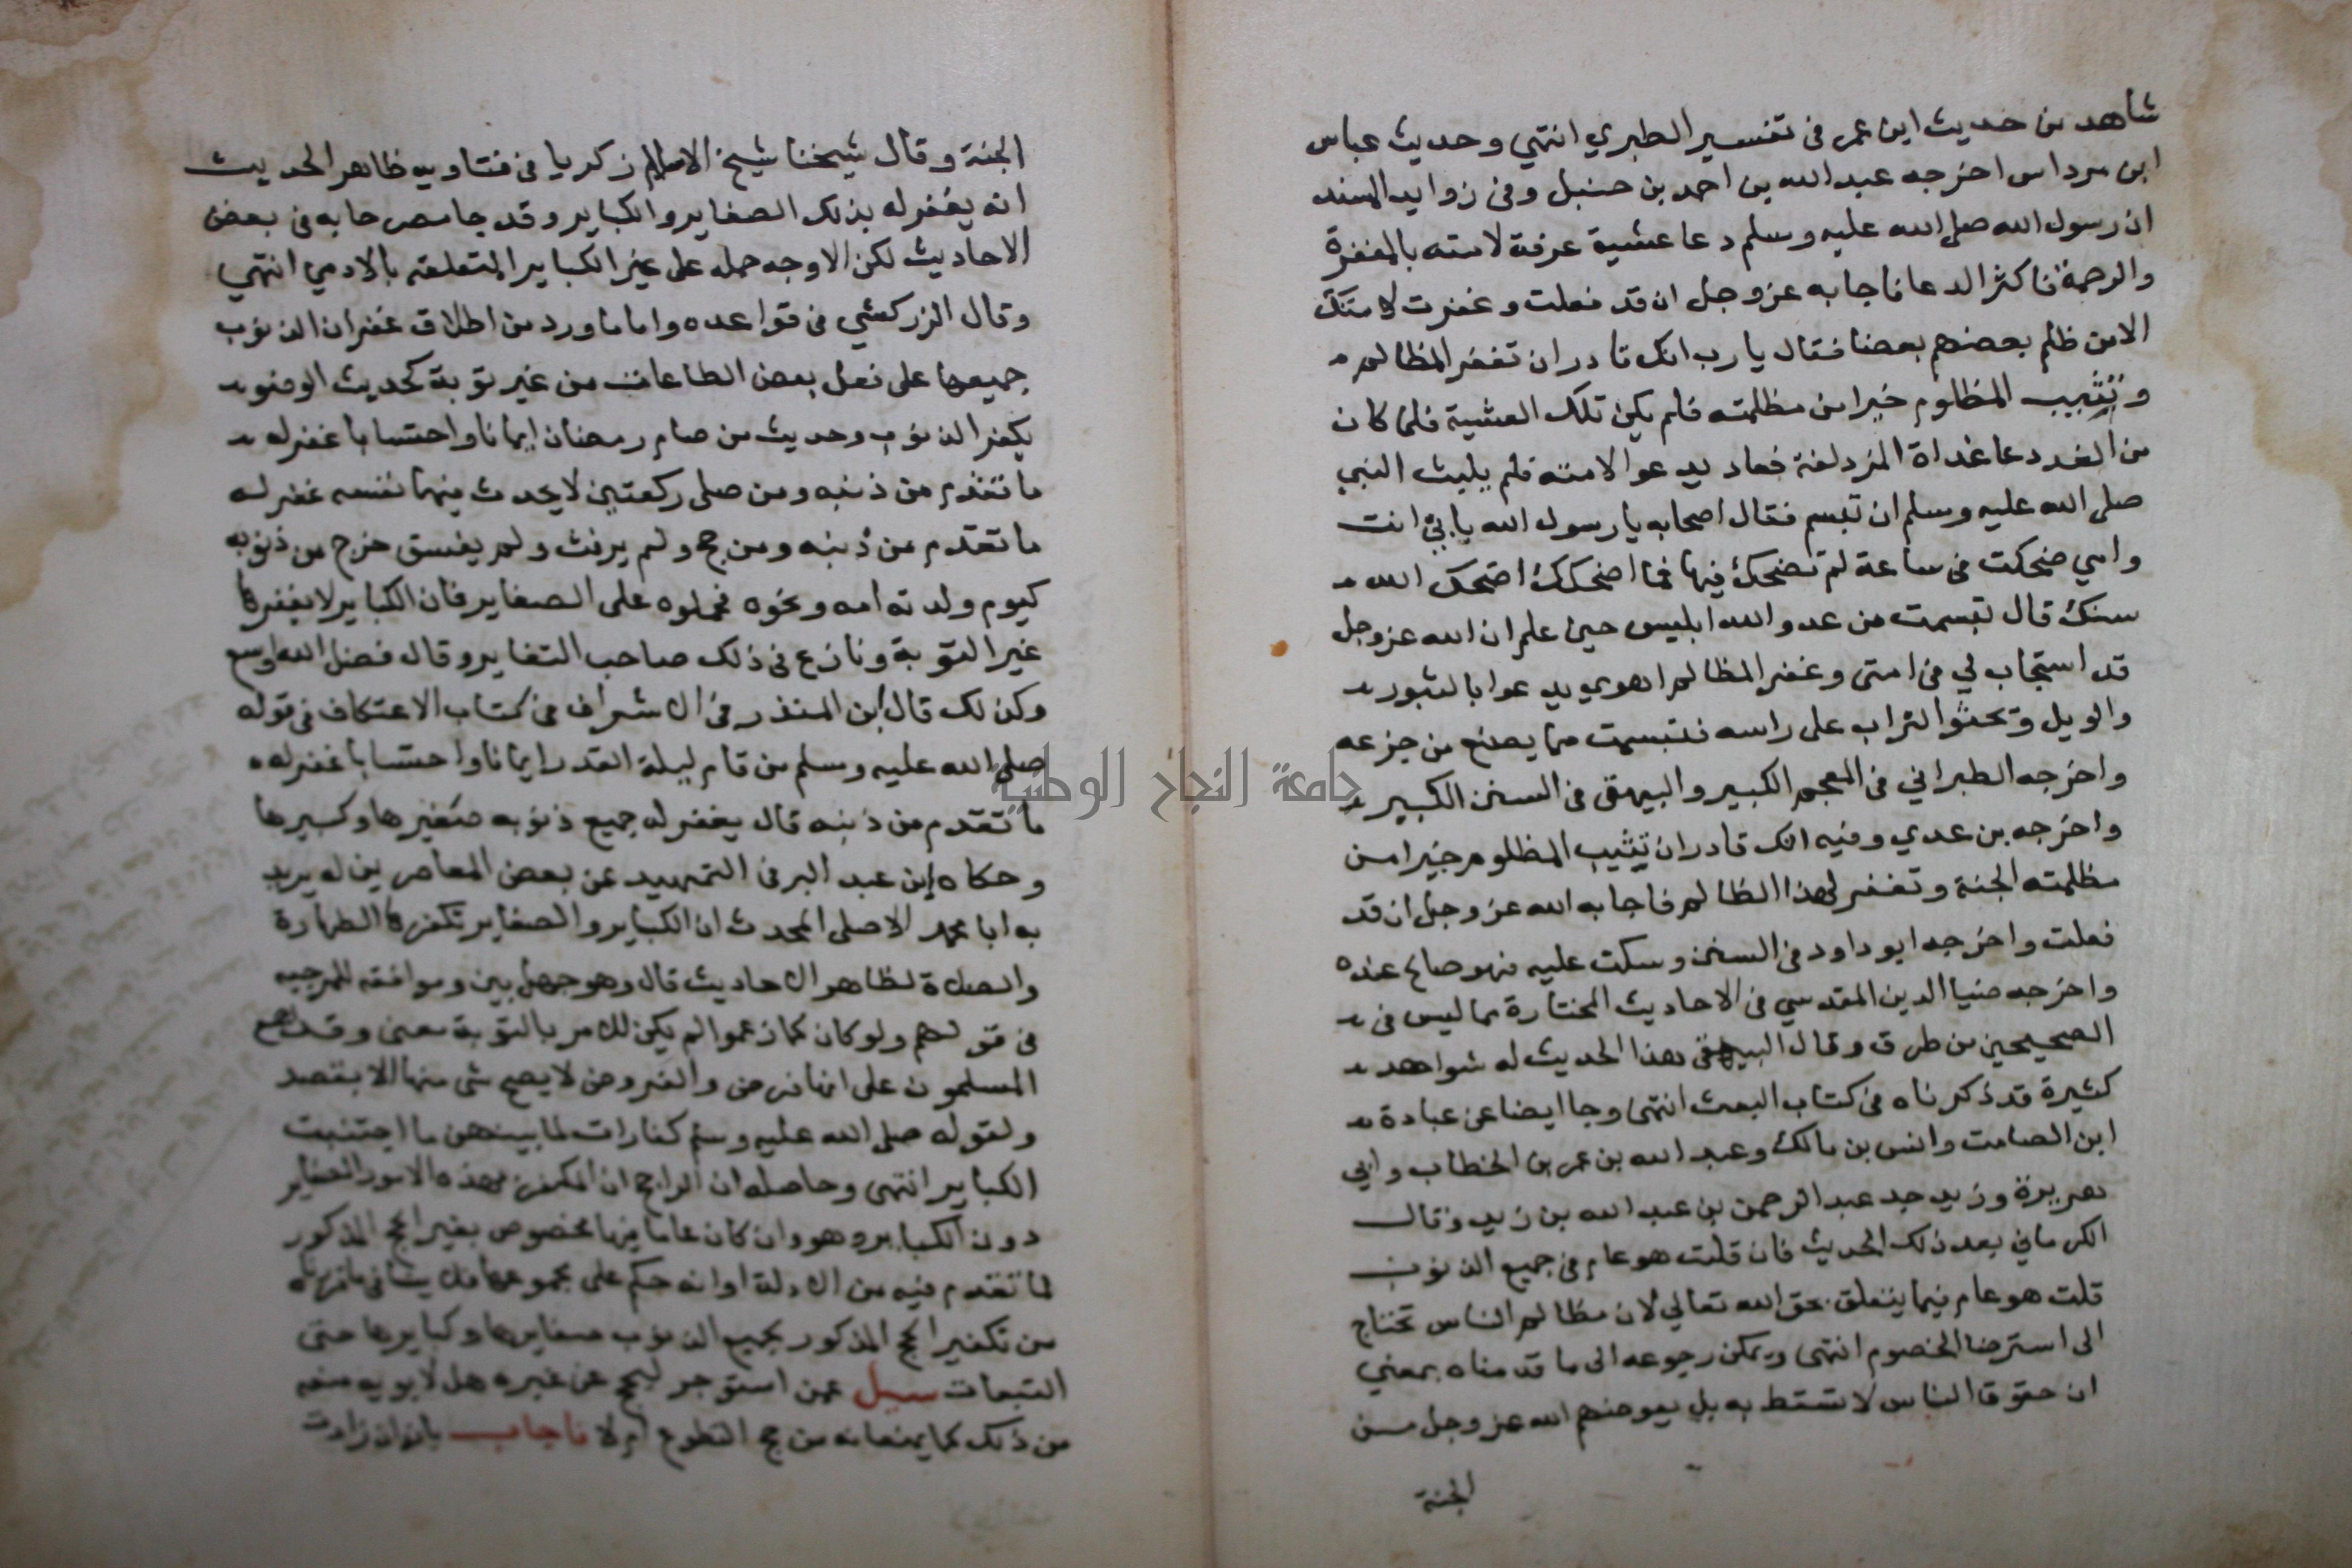 شاهد من حديث ابن عمر في تفسير الطبري انتهي وحديث عباس
ابن مرداس اخرجه عبد الله بن احمد بن حنبل وفي زوايد المسند
ان رسول الله صلى الله عليه وسلم دعا عشية عرفة لامته بالمغفرة
والرحمة فاكثر الدعا فاجابه عز وجل ان قد فعلت وغفرت لامتك
الا من ظلم بعضهم بعضا فقال يا رب انك قادر ان تغفر للظالم
وتثيب المظلوم خيرا من مظلمته فلم يكن تلك العشية فلما كان
من الغد دعا غداة المزدلفة فعاد يدعو الامته فلم يلبث النبي
صلى الله عليه وسلم ان تبسم فقال اصحابه يا رسول الله بابي انت
وامي ضحكت في ساعة لم تضحك فيها فما اضحكك اضحك الله
سنك قال تبسمت من عدو الله ابليس حين علم ان الله عز وجل
قد استجاب لي في امتى وغفر المظالم اهوي يدعوا بالثبور
والويل ويحثوا التراب على راسه فتبسمت مما يصنع من جزعه
واخرجه الطبراني في المعجم الكبير والبيهقى في السنن الكبير
واخرجه بن عدي وفيه انك قادر ان تثيب المظلوم خيرا من
مظلمته الجنة وتغفر لهذا الظالم فاجابه الله عز وجل ان قد
فعلت واخرجه ابو داود في السنن وسكت عليه فهو صالح عنده
واخرجه ضيا الدين المقدسي في الاحاديث المختارة مما ليس في
الصحيحين من طرق وقال البيهقي هذا الحديث له شواهد
كثيرة قد ذكرناه في كتاب البعث انتهى وجا ايضا عن عبادة
ابن الصامت وانس بن مالك وعبد الله بن عمر بن الخطاب وابي
هريرة وزيد جد عبد الرحمن بن عبد الله بن زيد وقال
الكرماني بعد ذلك الحديث فان قلت هو عام في جميع الذنوب
قلت هو عام فيما يتعلق بحق الله تعالي لان مظالم الناس تحتاج
الى استرضا الخصوم انتهى ويمكن رجوعه الى ما قدمناه بمعني
ان حقوق الناس لا تسقط به بل يعوضهم الله عز وجل من
الجنة
الجنة وقال شيخنا شيخ الاسلام زكريا في فتاويه ظاهر الحديث
انه يغفر له بذلك الصغاير والكباير وقد جا مصرحا به في بعض
الاحاديث لكن الاوجه حمله على غير الكباير المتعلقة بالادمي انتهي
وقال الزركشي في قواعده واما ما ورد من اطلاق غفران الذنوب
جميعها على فعل بعض الطاعات من غير توبة كحديث الوضو
يكفر الذنوب وحديث من صام رمضان ايمانا واحتسابا غفر له
ما تقدم من ذنبه ومن صلى ركعتين لا يحدث فيهما نفسه غفر له
ما تقدم من ذنبه ومن حج ولم يرفث ولم يفسق خرج من ذنوبه
كيوم ولدته امه ونحوه فحملوه على الصغاير فان الكباير لا يغفرها
غير التوبة ونازع في ذلك صاحب التغاير وقال فضل الله اوسع
وكذلك قال ابن المنذر في الاشراف في كتاب الاعتكاف في قوله
صلى الله عليه وسلم من قام ليلة القدر ايمانا واحتسابا غفر له
ما تقدم من ذنبه قال يغفر له جميع ذنوبه صغيرها وكبيرها
وحكاه ابن عبد البر في التمهيد عن بعض المعاصرين له يريد
به ابا محمد الاصلى المحدث ان الكباير والصغاير تكفرها الطهارة
والصلاة لظاهر الاحاديث قال وهو جهل بين وموافقة للمرجيه
في قولهم ولو كان كما زعموا لم يكن للامر بالتوبة معنى وقد اجمع
المسلمون على انها فرض والفروض لا يصح شي منها الا بقصد
ولقوله صلى الله عليه وسلم كفارات لما بينهن ما اجتنبت
الكباير انتهى وحاصله ان الراجح ان المكفر بهذه الامور الصغاير
دون الكباير وهو وان كان عاما فيها مخصوص بغير الحج المذكور
لما تقدم فيه من الادلة او انه حكم على مجموعها فلا ينافي ما قررناه
من تكفير الحج المذكور بجميع الذنوب صغايرها وكبايرها حتى
التبعات سيل عمن استوجر ليحج عن غيره هل لابويه منعه
من ذلك كما يمنعانه من حج التطوع ام لا فاجاب بانه ان زادت
جامعة النجاح الوطنية